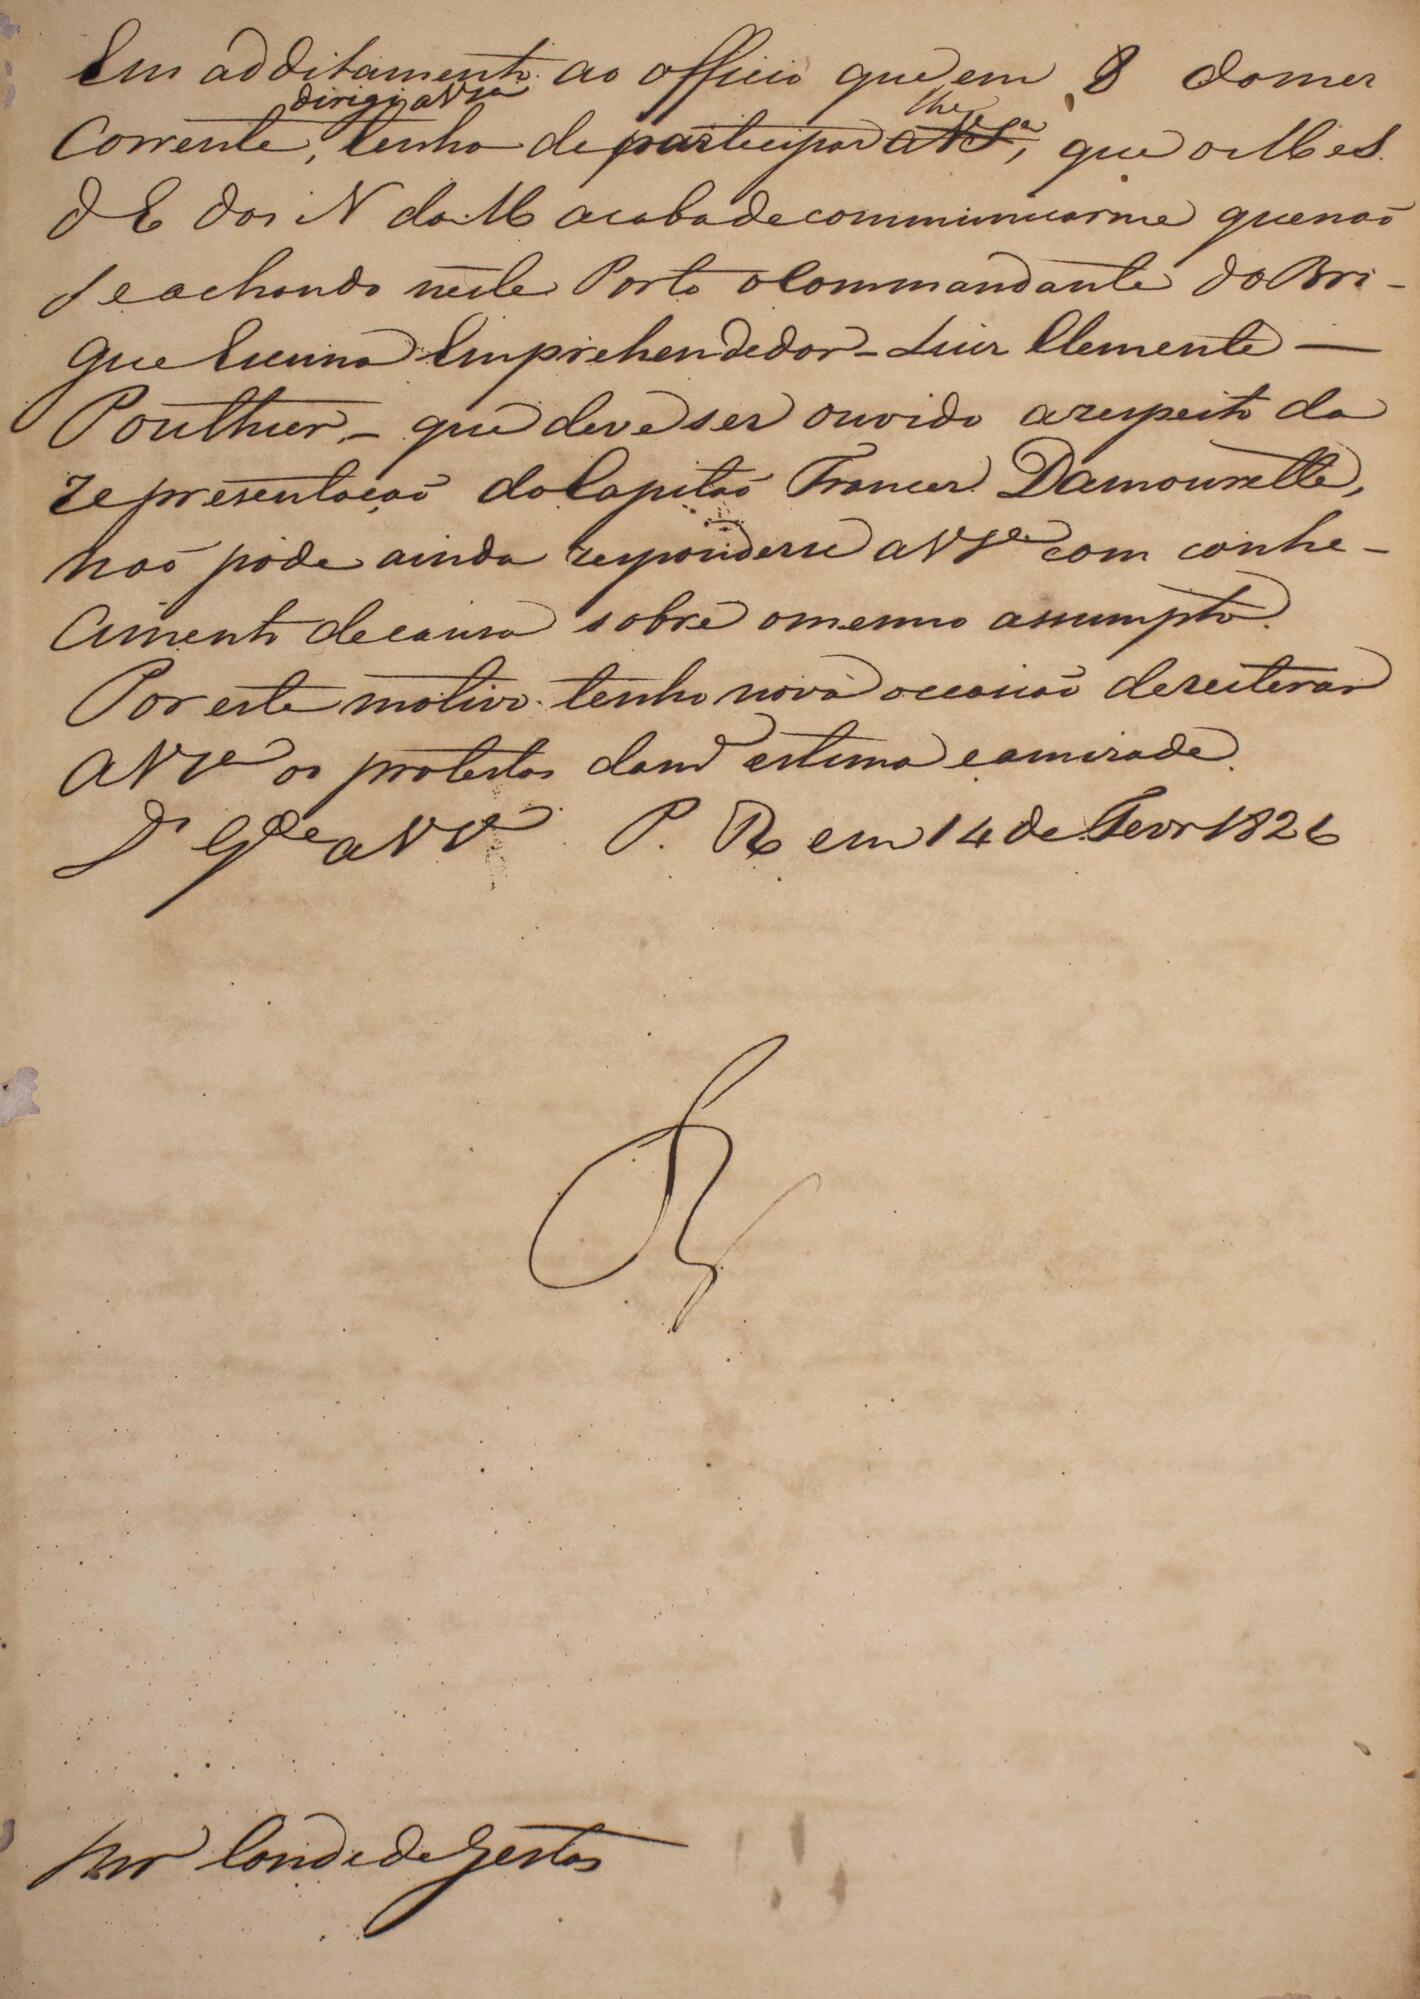 Em additamento ao officio que em 8 do mez
dirigi a VSa
lhe
Corrente, tenho de participar a VSa, que o M e S.
d E dos N da M acaba de communicarme que não
se achando neste Porto o Commandante do Bri-
gue Escuna Emprehendedor - Luiz Clemente —
Pouthier, - que deve ser ouvido a respeito da
representação do Capitão Francez Damourette,
não póde ainda responderse a VSa com conhe-
cimento de causa sobre o mesmo assumpto.
Por este motivo tenho nova occasião de reiterar
a VSa os protestos da mª estima e amizade.
Ds Gde a VSa P. R em 14 de Fevr 1826
Snr Conde de Gestas